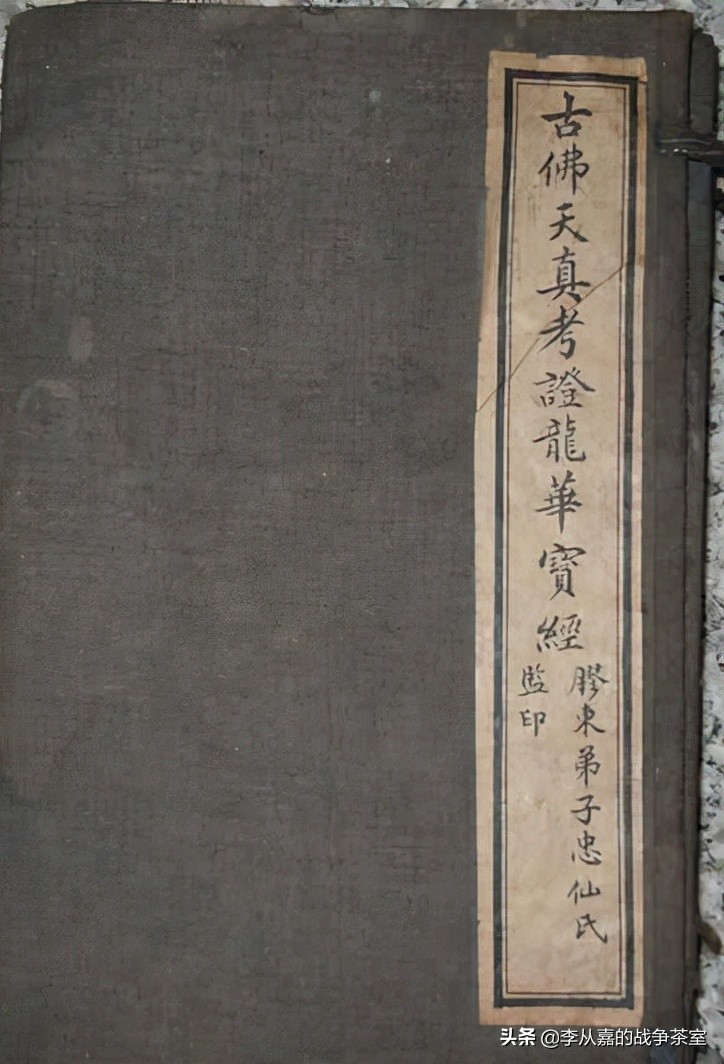 古佛天真考證龍華寶經
膠東弟子忠仙氏
監印
头条 @李从嘉的战争茶室